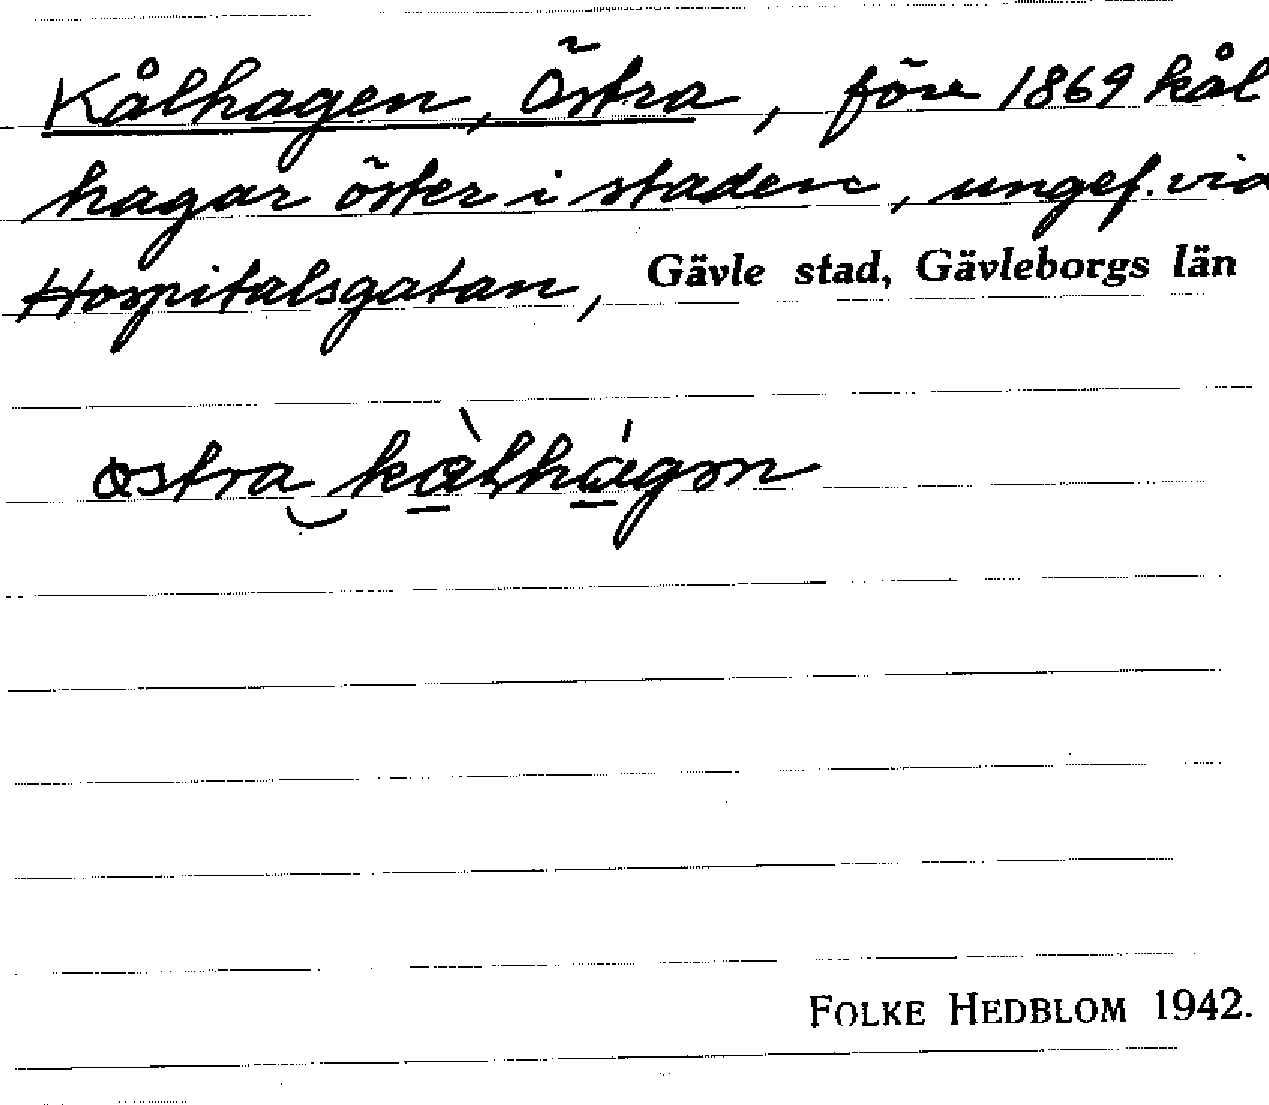 Kålhagen, Östra, före 1869 kål
hagar öster i staden, ungef. vid
Hospitalsgatan, Gävle stad, Gävleborgs län
FOLKE HEDBLOM 1942.